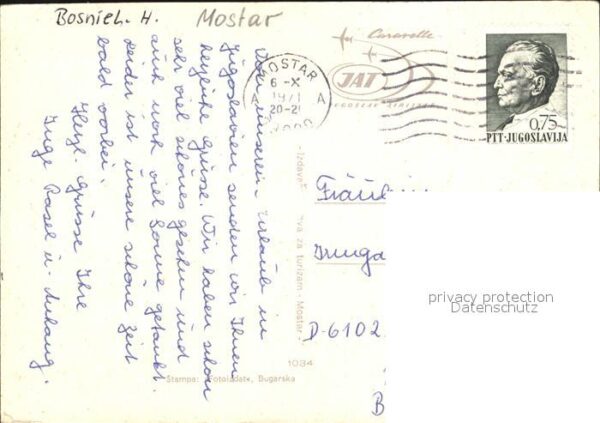 Bosnieh. H. Mostar
Caravelle
JAT
JUGOSLAV AIRLINES
MOSTAR
6 -X
1971
20-21
A A
0,75
PTT-JUGOSLAVIJA
Von unserem Urlaub in
Jugoslavien senden wir Ihnen
herzliche Grüsse. Wir haben schon
sehr viel schönes gesehen und
auch noch viel Sonne getankt.
Leider ist unsere schöne Zeit
bald vorbei.
Herzl. Grüsse Ihre
Inge Rasel u. Anhang.
za turizam - Mostar -
Fräul
Irmga
D-6102
B
1034
Štampa: Bugarska
privacy protection
Datenschutz